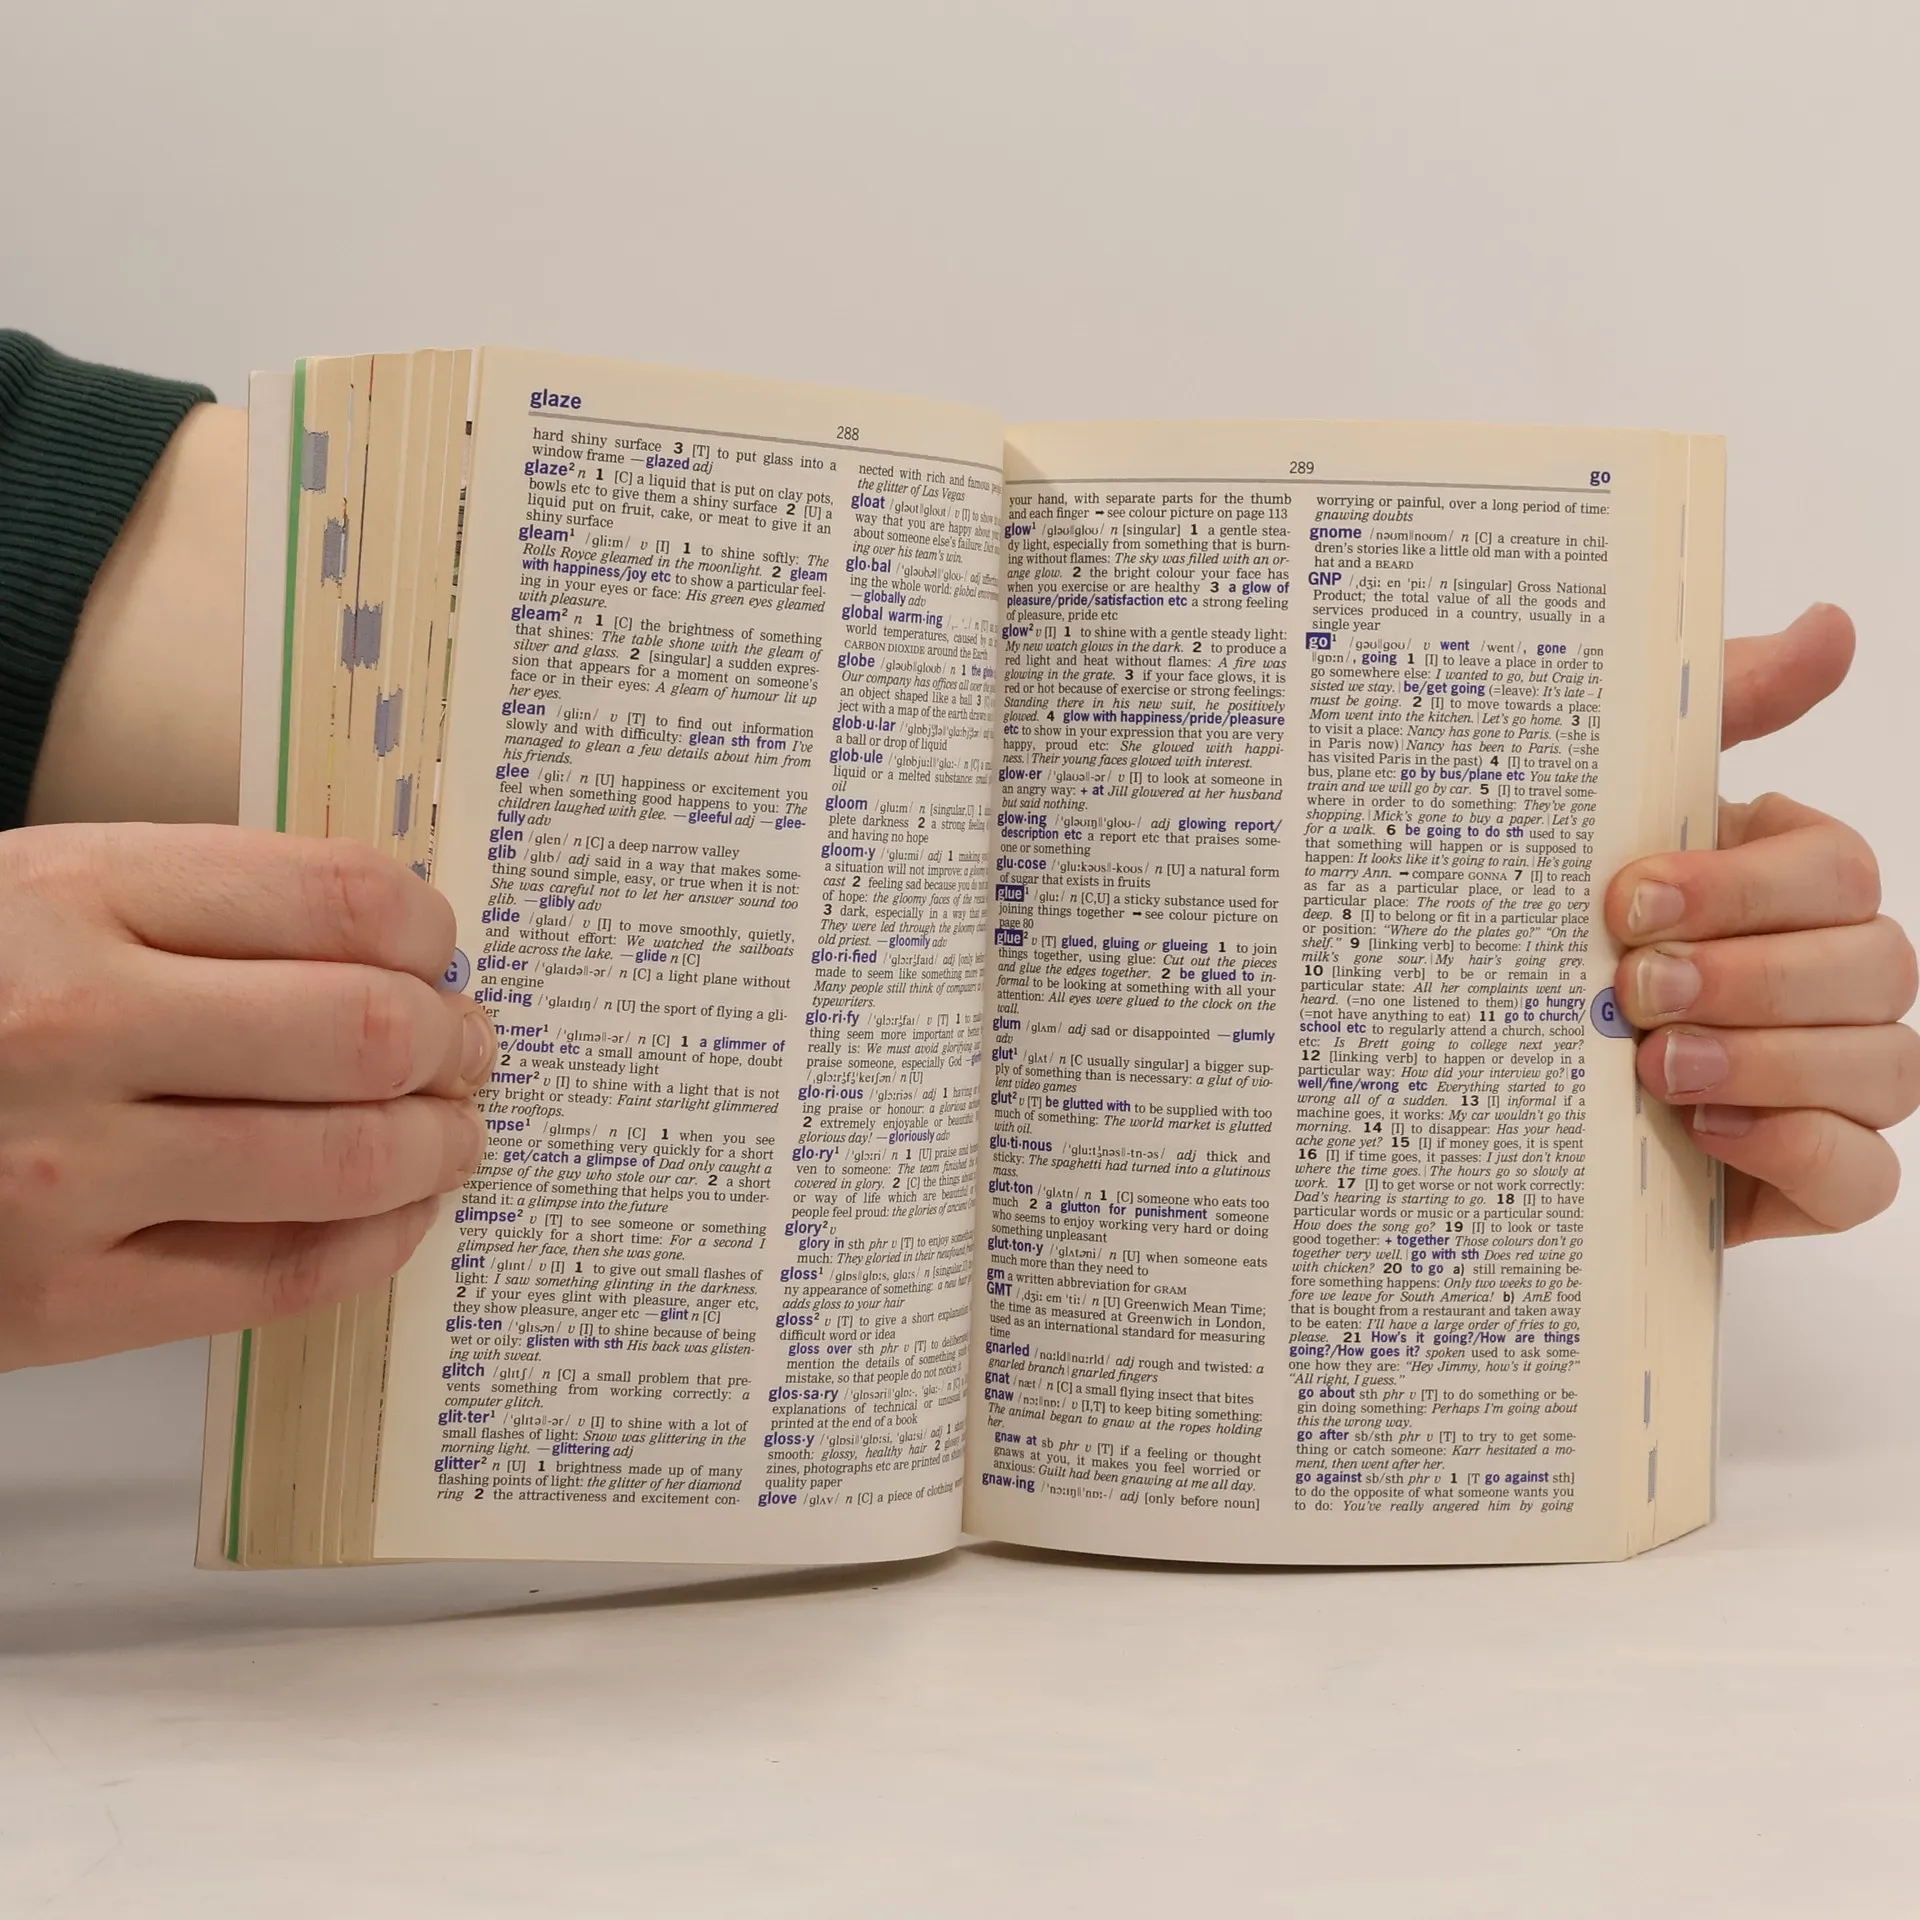 glaze
288
hard shiny surface 3 [T] to put glass into a
window frame —glazed adj
glaze² n 1 [C] a liquid that is put on clay pots,
bowls etc to give them a shiny surface 2 [U] a
liquid put on fruit, cake, or meat to give it an
shiny surface
gleam¹ /gliːm/ v [I] 1 to shine softly: The
Rolls Royce gleamed in the moonlight. 2 gleam
with happiness/joy etc to show a particular feel-
ing in your eyes or face: His green eyes gleamed
with pleasure.
gleam² n 1 [C] the brightness of something
that shines: The table shone with the gleam of
silver and glass. 2 [singular] a sudden expres-
sion that appears for a moment on someone's
face or in their eyes: A gleam of humour lit up
her eyes.
glean /gliːn/ v [T] to find out information
slowly and with difficulty: glean sth from I've
managed to glean a few details about him from
his friends.
glee /gliː/ n [U] happiness or excitement you
feel when something good happens to you: The
children laughed with glee. —gleeful adj —glee-
fully adv
glen /glen/ n [C] a deep narrow valley
glib /glɪb/ adj said in a way that makes some-
thing sound simple, easy, or true when it is not:
She was careful not to let her answer sound too
glib. —glibly adv
glide /glaɪd/ v [I] to move smoothly, quietly,
and without effort: We watched the sailboats
glide across the lake. —glide n [C]
glid·er /ˈglaɪdə||-ər/ n [C] a light plane without
an engine
glid·ing /ˈglaɪdɪŋ/ n [U] the sport of flying a gli-
er
m·mer¹ /ˈglɪmə||-ər/ n [C] 1 a glimmer of
e/doubt etc a small amount of hope, doubt
2 a weak unsteady light
mmer² v [I] to shine with a light that is not
ery bright or steady: Faint starlight glimmered
n the rooftops.
mpse¹ /glɪmps/ n [C] 1 when you see
meone or something very quickly for a short
e: get/catch a glimpse of Dad only caught a
impse of the guy who stole our car. 2 a short
experience of something that helps you to under-
stand it: a glimpse into the future
glimpse² v [T] to see someone or something
very quickly for a short time: For a second I
glimpsed her face, then she was gone.
glint /glɪnt/ v [I] 1 to give out small flashes of
light: I saw something glinting in the darkness.
2 if your eyes glint with pleasure, anger etc,
they show pleasure, anger etc —glint n [C]
glis·ten /ˈglɪsən/ v [I] to shine because of being
wet or oily: glisten with sth His back was glisten-
ing with sweat.
glitch /glɪtʃ/ n [C] a small problem that pre-
vents something from working correctly: a
computer glitch.
glit·ter¹ /ˈglɪtə||-ər/ v [I] to shine with a lot of
small flashes of light: Snow was glittering in the
morning light. —glittering adj
glitter² n [U] 1 brightness made up of many
flashing points of light: the glitter of her diamond
ring 2 the attractiveness and excitement con-
G
nected with rich and famous
the glitter of Las Vegas
gloat /gləʊt||gloʊt/ v [I] to show
way that you are happy about
about someone else's failure:
ing over his team's win.
glo·bal /ˈgləʊbəl||ˈgloʊ-/ adj
ing the whole world: global
—globally adv
global warm·ing n [U]
world temperatures, caused by
CARBON DIOXIDE around the Earth
globe /gləʊb||gloʊb/ n 1 the
Our company has offices all over
an object shaped like a ball 3
ject with a map of the earth
glob·u·lar
a ball or drop of liquid
glob·ule
liquid or a melted substance:
oil
gloom /gluːm/ n [singular,U] 1
plete darkness 2 a strong feeling
and having no hope
gloom·y /ˈgluːmi/ adj 1 making
a situation will not improve: a gloomy
cast 2 feeling sad because you do
of hope: the gloomy faces of the
3 dark, especially in a way that
They were led through the gloomy
old priest. —gloomily adv
glo·ri·fied /ˈglɔːrɪfaɪd/ adj [only
made to seem like something more
Many people still think of computers
typewriters.
glo·ri·fy v [T] 1 to
thing seem more important or
really is: We must avoid glorifying
praise someone, especially God
n [U]
glo·ri·ous /ˈglɔːriəs/ adj 1 having
ing praise or honour: a glorious
2 extremely enjoyable or
glorious day! —gloriously adv
glo·ry¹ /ˈglɔːri/ n 1 [U] praise and
ven to someone: The team finished
covered in glory. 2 [C] the things
or way of life which are
people feel proud: the glories of ancient
glory² v
glory in sth phr v [T] to enjoy
much: They gloried in their newfound
gloss¹ /glɒs||glɔːs, glɑːs/ n
ny appearance of something: a new
adds gloss to your hair
gloss² v [T] to give a short
difficult word or idea
gloss over sth phr v [T] to
mention the details of something
mistake, so that people do not notice
glos·sa·ry
explanations of technical or unusual
printed at the end of a book
gloss·y adj 1
smooth: glossy, healthy hair 2
zines, photographs etc are printed on
quality paper
glove /glʌv/ n [C] a piece of clothing
289
go
your hand, with separate parts for the thumb
and each finger ➞ see colour picture on page 113
glow¹ /gləʊ||gloʊ/ n [singular] 1 a gentle stea-
dy light, especially from something that is burn-
ing without flames: The sky was filled with an or-
ange glow. 2 the bright colour your face has
when you exercise or are healthy 3 a glow of
pleasure/pride/satisfaction etc a strong feeling
of pleasure, pride etc
glow² v [I] 1 to shine with a gentle steady light:
My new watch glows in the dark. 2 to produce a
red light and heat without flames: A fire was
glowing in the grate. 3 if your face glows, it is
red or hot because of exercise or strong feelings:
Standing there in his new suit, he positively
glowed. 4 glow with happiness/pride/pleasure
etc to show in your expression that you are very
happy, proud etc: She glowed with happi-
ness. | Their young faces glowed with interest.
glow·er /ˈglaʊə||-ər/ v [I] to look at someone in
an angry way: + at Jill glowered at her husband
but said nothing.
glow·ing /ˈgləʊɪŋ||ˈgloʊ-/ adj glowing report/
description etc a report etc that praises some-
one or something
glu·cose /ˈgluːkəʊs||-koʊs/ n [U] a natural form
of sugar that exists in fruits
glue¹ /gluː/ n [C,U] a sticky substance used for
joining things together ➞ see colour picture on
page 80
glue² v [T] glued, gluing or glueing 1 to join
things together, using glue: Cut out the pieces
and glue the edges together. 2 be glued to in-
formal to be looking at something with all your
attention: All eyes were glued to the clock on the
wall.
glum /glʌm/ adj sad or disappointed —glumly
adv
glut¹ /glʌt/ n [C usually singular] a bigger sup-
ply of something than is necessary: a glut of vio-
lent video games
glut² v [T] be glutted with to be supplied with too
much of something: The world market is glutted
with oil.
glu·ti·nous /ˈgluːtɪnəs||-tn-əs/ adj thick and
sticky: The spaghetti had turned into a glutinous
mass.
glut·ton /ˈglʌtn/ n 1 [C] someone who eats too
much 2 a glutton for punishment someone
who seems to enjoy working very hard or doing
something unpleasant
glut·ton·y /ˈglʌtəni/ n [U] when someone eats
much more than they need to
gm a written abbreviation for GRAM
GMT /ˌdʒiː em ˈtiː/ n [U] Greenwich Mean Time;
the time as measured at Greenwich in London,
used as an international standard for measuring
time
gnarled /nɑːld||nɑːrld/ adj rough and twisted: a
gnarled branch | gnarled fingers
gnat /næt/ n [C] a small flying insect that bites
gnaw /nɔː||nɒː/ v [I,T] to keep biting something:
The animal began to gnaw at the ropes holding
her.
gnaw at sb phr v [T] if a feeling or thought
gnaws at you, it makes you feel worried or
anxious: Guilt had been gnawing at me all day.
gnaw·ing /ˈnɔːɪŋ||ˈnɒː-/ adj [only before noun]
worrying or painful, over a long period of time:
gnawing doubts
gnome /nəʊm||noʊm/ n [C] a creature in chil-
dren's stories like a little old man with a pointed
hat and a BEARD
GNP /ˌdʒiː en ˈpiː/ n [singular] Gross National
Product; the total value of all the goods and
services produced in a country, usually in a
single year
go¹ /gəʊ||goʊ/ v went /went/, gone /gɒn
||gɒːn/, going 1 [I] to leave a place in order to
go somewhere else: I wanted to go, but Craig in-
sisted we stay. | be/get going (=leave): It's late – I
must be going. 2 [I] to move towards a place:
Mom went into the kitchen. | Let's go home. 3 [I]
to visit a place: Nancy has gone to Paris. (=she is
in Paris now) | Nancy has been to Paris. (=she
has visited Paris in the past) 4 [I] to travel on a
bus, plane etc: go by bus/plane etc You take the
train and we will go by car. 5 [I] to travel some-
where in order to do something: They've gone
shopping. | Mick's gone to buy a paper. | Let's go
for a walk. 6 be going to do sth used to say
that something will happen or is supposed to
happen: It looks like it's going to rain. | He's going
to marry Ann. ➞ compare GONNA 7 [I] to reach
as far as a particular place, or lead to a
particular place: The roots of the tree go very
deep. 8 [I] to belong or fit in a particular place
or position: "Where do the plates go?" "On the
shelf." 9 [linking verb] to become: I think this
milk's gone sour. | My hair's going grey.
10 [linking verb] to be or remain in a
particular state: All her complaints went un-
heard. (=no one listened to them) | go hungry
(=not have anything to eat) 11 go to church/
school etc to regularly attend a church, school
etc: Is Brett going to college next year?
12 [linking verb] to happen or develop in a
particular way: How did your interview go? | go
well/fine/wrong etc Everything started to go
wrong all of a sudden. 13 [I] informal if a
machine goes, it works: My car wouldn't go this
morning. 14 [I] to disappear: Has your head-
ache gone yet? 15 [I] if money goes, it is spent
16 [I] if time goes, it passes: I just don't know
where the time goes. | The hours go so slowly at
work. 17 [I] to get worse or not work correctly:
Dad's hearing is starting to go. 18 [I] to have
particular words or music or a particular sound:
How does the song go? 19 [I] to look or taste
good together: + together Those colours don't go
together very well. | go with sth Does red wine go
with chicken? 20 to go a) still remaining be-
fore something happens: Only two weeks to go be-
fore we leave for South America! b) AmE food
that is bought from a restaurant and taken away
to be eaten: I'll have a large order of fries to go,
please. 21 How's it going?/How are things
going?/How goes it? spoken used to ask some-
one how they are: "Hey Jimmy, how's it going?"
"All right, I guess."
go about sth phr v [T] to do something or be-
gin doing something: Perhaps I'm going about
this the wrong way.
go after sb/sth phr v [T] to try to get some-
thing or catch someone: Karr hesitated a mo-
ment, then went after her.
go against sb/sth phr v 1 [T go against sth]
to do the opposite of what someone wants you
to do: You've really angered him by going
G